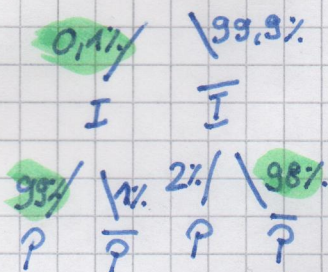 0,1% 99,9%
I I̅
99% 1% 2% 98%
P P̅ P P̅